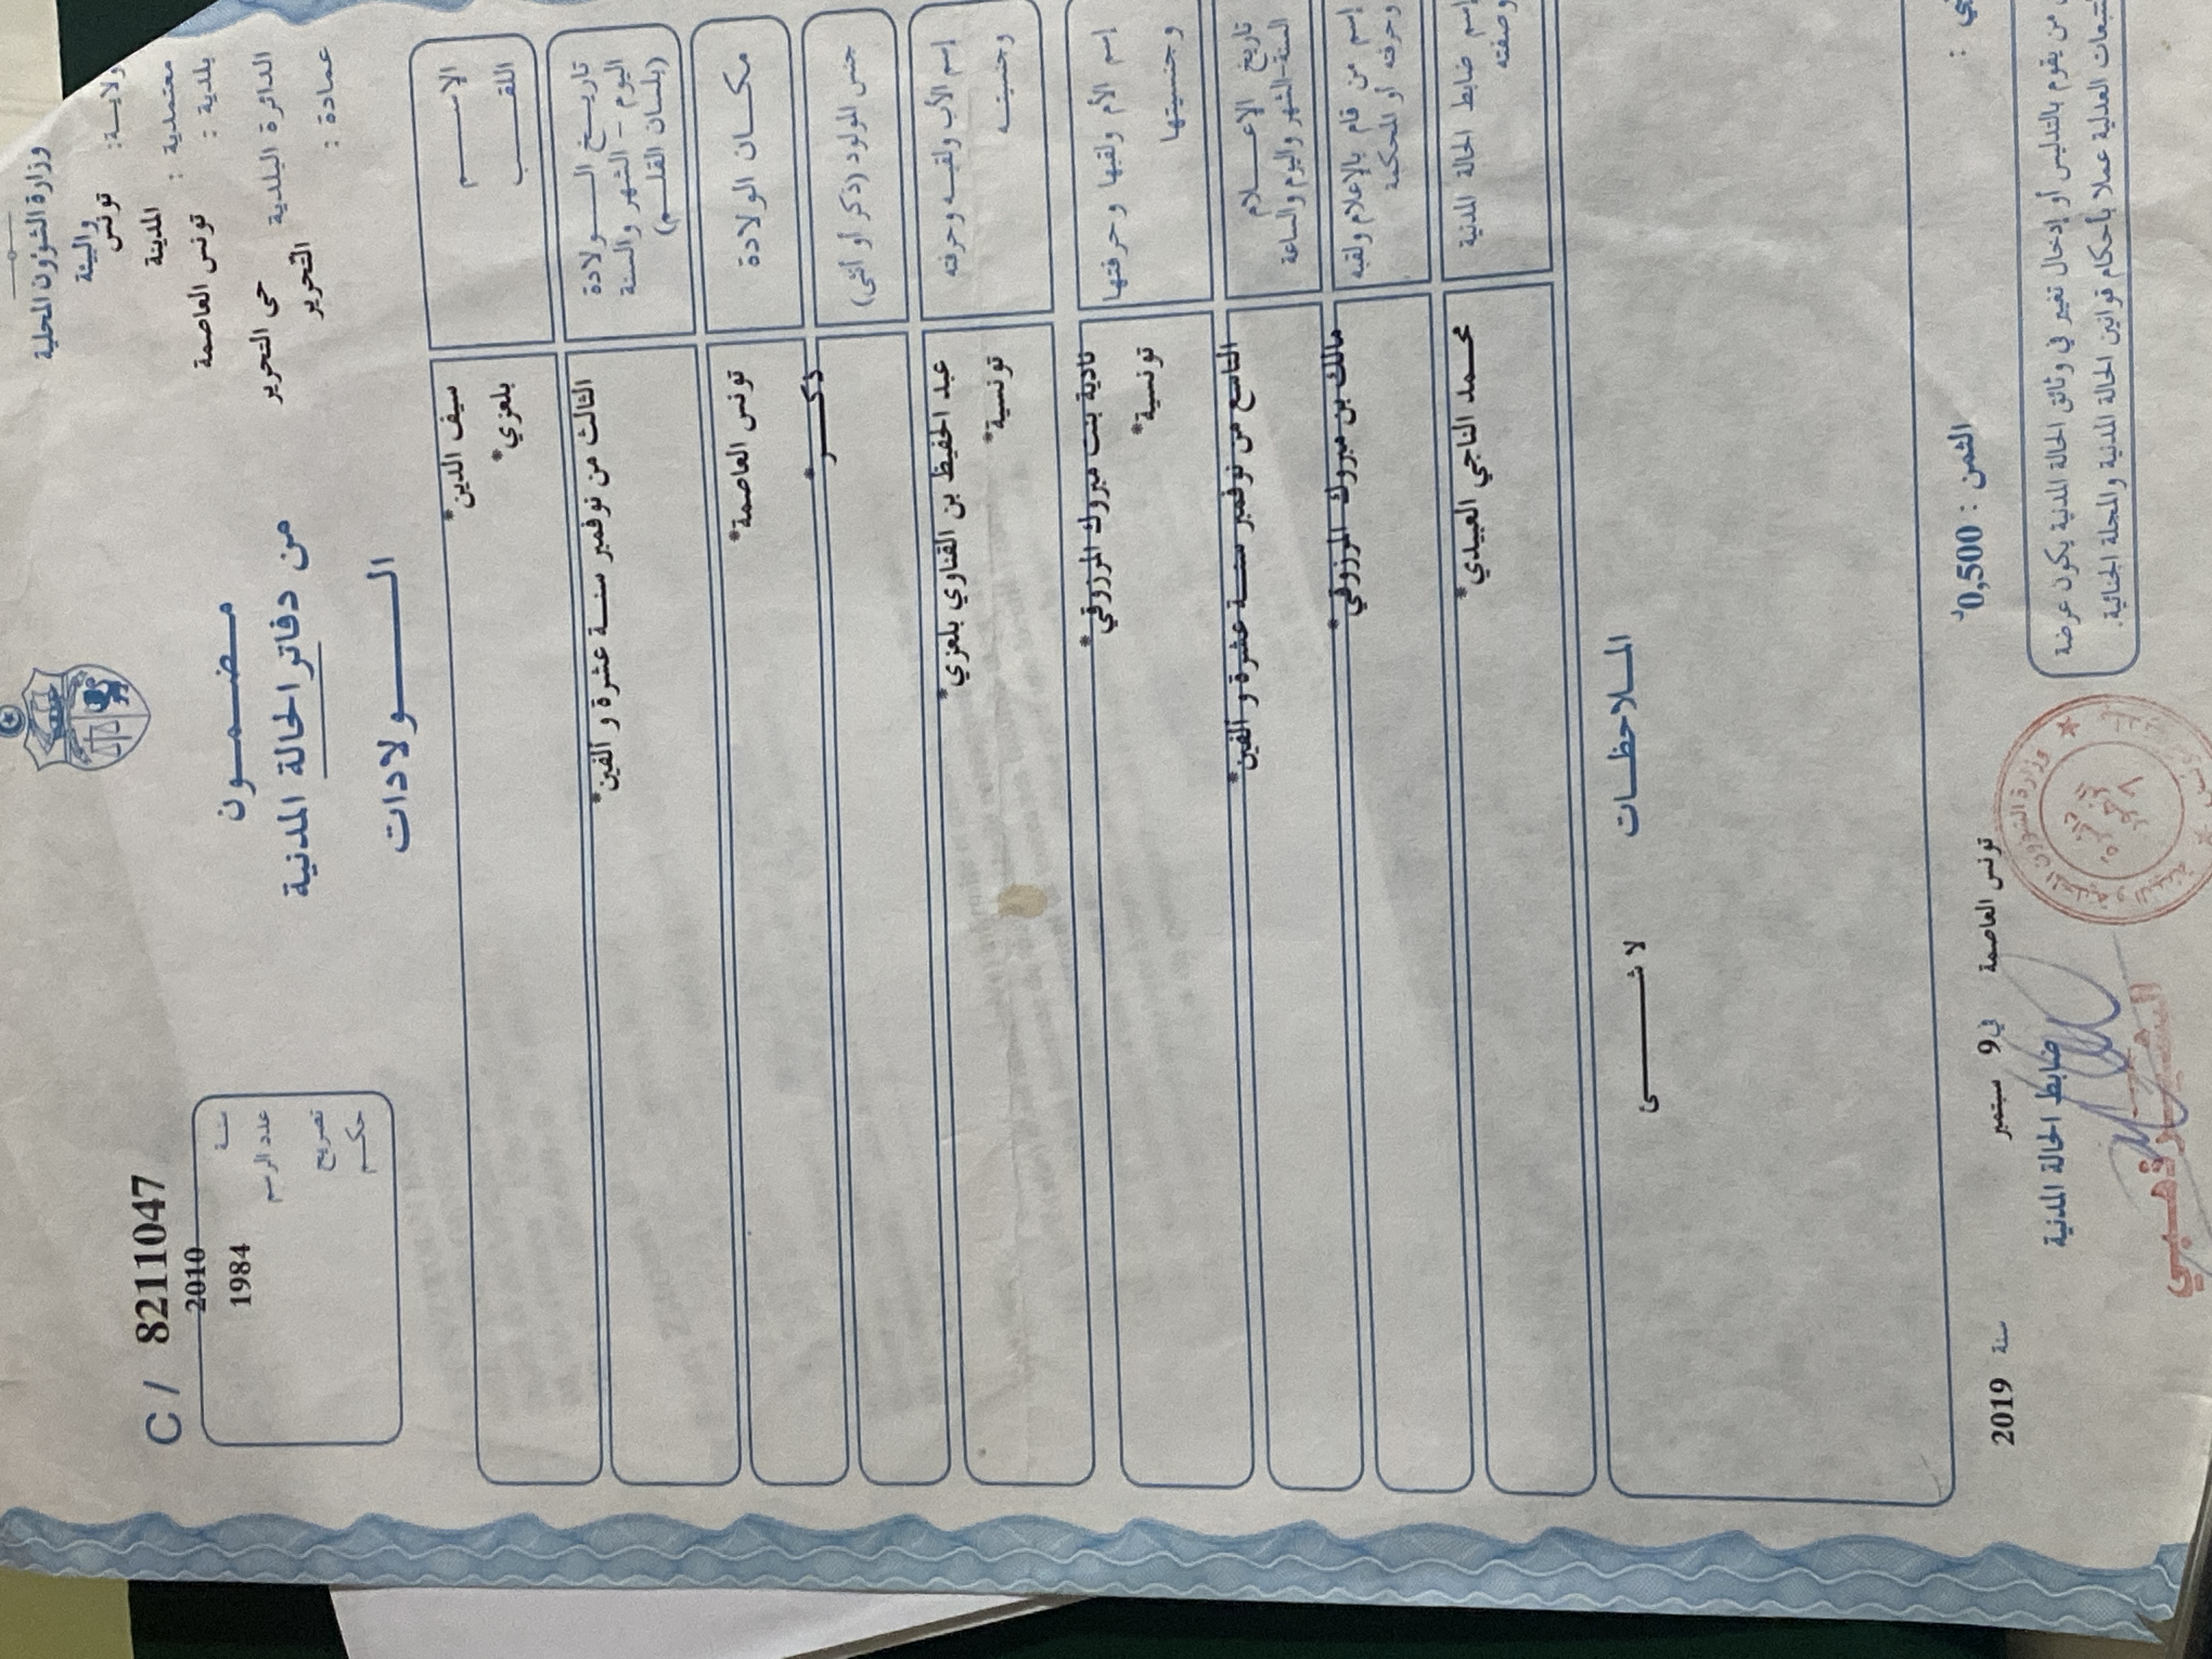 وزارة الشؤون المحلية
والبيئة
ولاية: تونس
معتمدية : المدينة
بلدية : تونس العاصمة
الدائرة البلدية حي التحرير
عمادة : التحرير
C / 82111047
سنة 2010
عدد الرسم 1984
تصريح
حكم
مضمون
من دفاتر الحالة المدنية
الولادات
الاسم سيف الدين*
اللقب بلعزي*
تاريخ الولادة
اليوم - الشهر والسنة
(بلسان القلم)
الثالث من نوفمبر سنة عشرة و ألفين*
مكان الولادة تونس العاصمة*
جنس المولود (ذكر أو أنثى) ذكر*
إسم الأب ولقبه وحرفته عبد الحفيظ بن القناوي بلعزي*
وجنسيته تونسية*
إسم الأم ولقبها وحرفتها نادية بنت مبروك المرزوقي*
وجنسيتها تونسية*
تاريخ الإعلام
السنة-الشهر واليوم والساعة
التاسع من نوفمبر سنة عشرة و ألفين*
إسم من قام بالإعلام ولقبه
وحرفته أو المحكمة
مالك بن مبروك المرزوقي*
إسم ضابط الحالة المدنية
وصفته
محمد الناجي العبيدي*
الملاحظات
لا شئ
الثمن : 0,500د
تونس العاصمة في 9 سبتمبر سنة 2019
ضابط الحالة المدنية
من يقوم بالتدليس أو إدخال تغيير في وثائق الحالة المدنية يكون عرضة
العدلية عملا بأحكام قوانين الحالة المدنية والمجلة الجنائية.